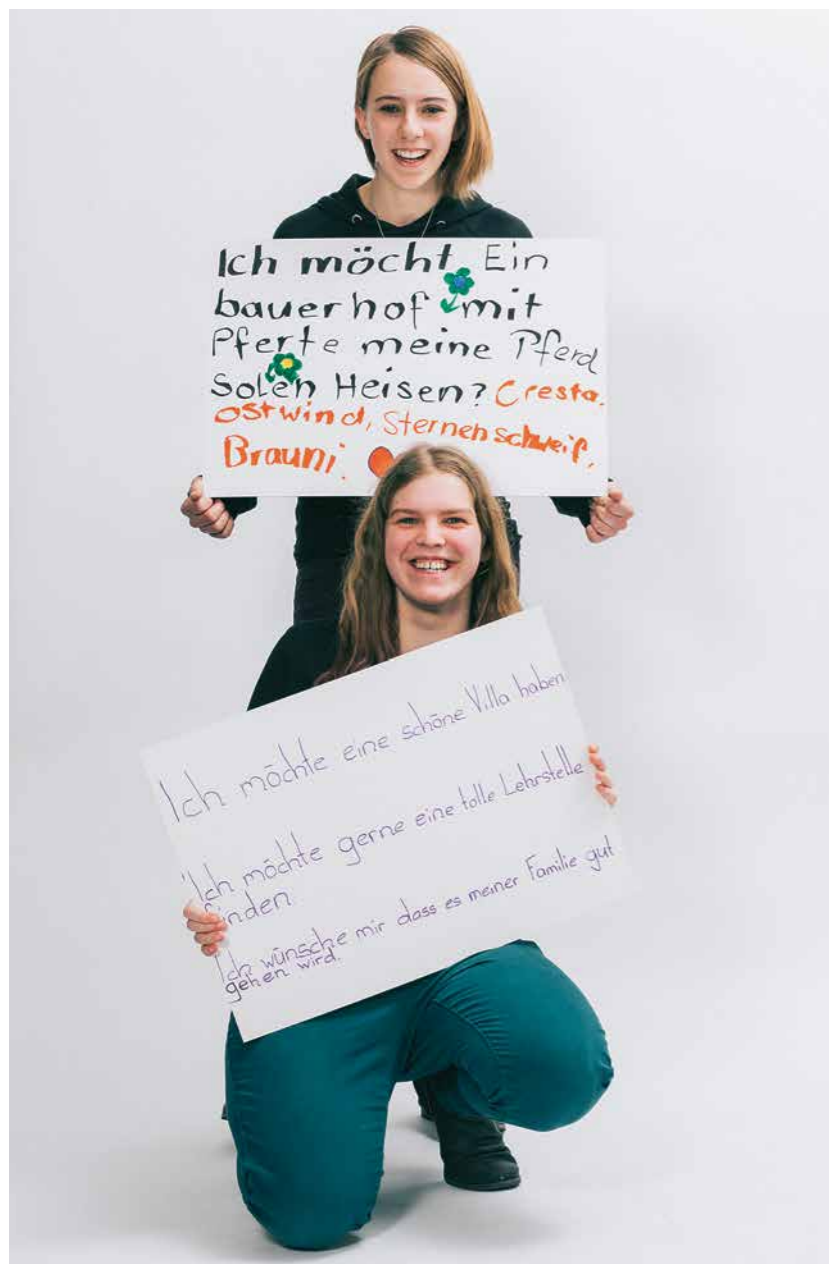 Ich möcht Ein
bauerhof mit
Pferte meine Pferd
Solen Heisen? Cresta.
ostwind, Sternenschweif,
Brauni.
Ich möchte eine schöne Villa haben
Ich möchte gerne eine tolle Lehrstelle
finden.
Ich wünsche mir dass es meiner Familie gut
gehen wird.